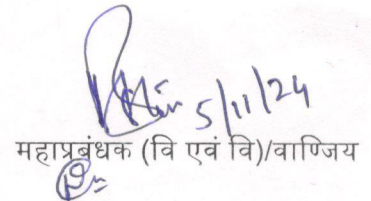 5/11/24
महाप्रबंधक (वि एवं वि)/वाणिज्य